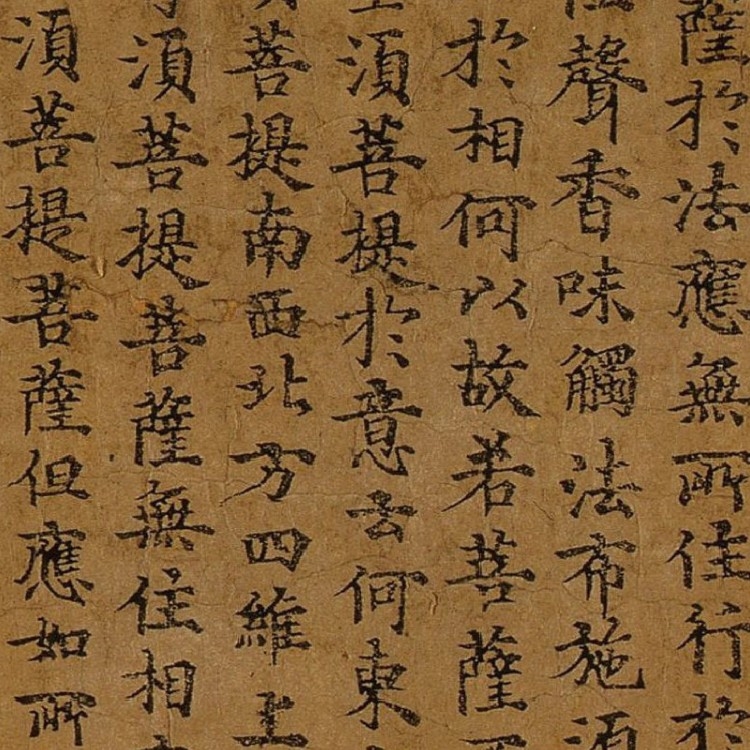 薩於法應無所住行於
聲香味觸法布施須
於相何以故若菩薩
須菩提於意云何東
菩提南西北方四維上
須菩提菩薩無住相
須菩提菩薩但應如所